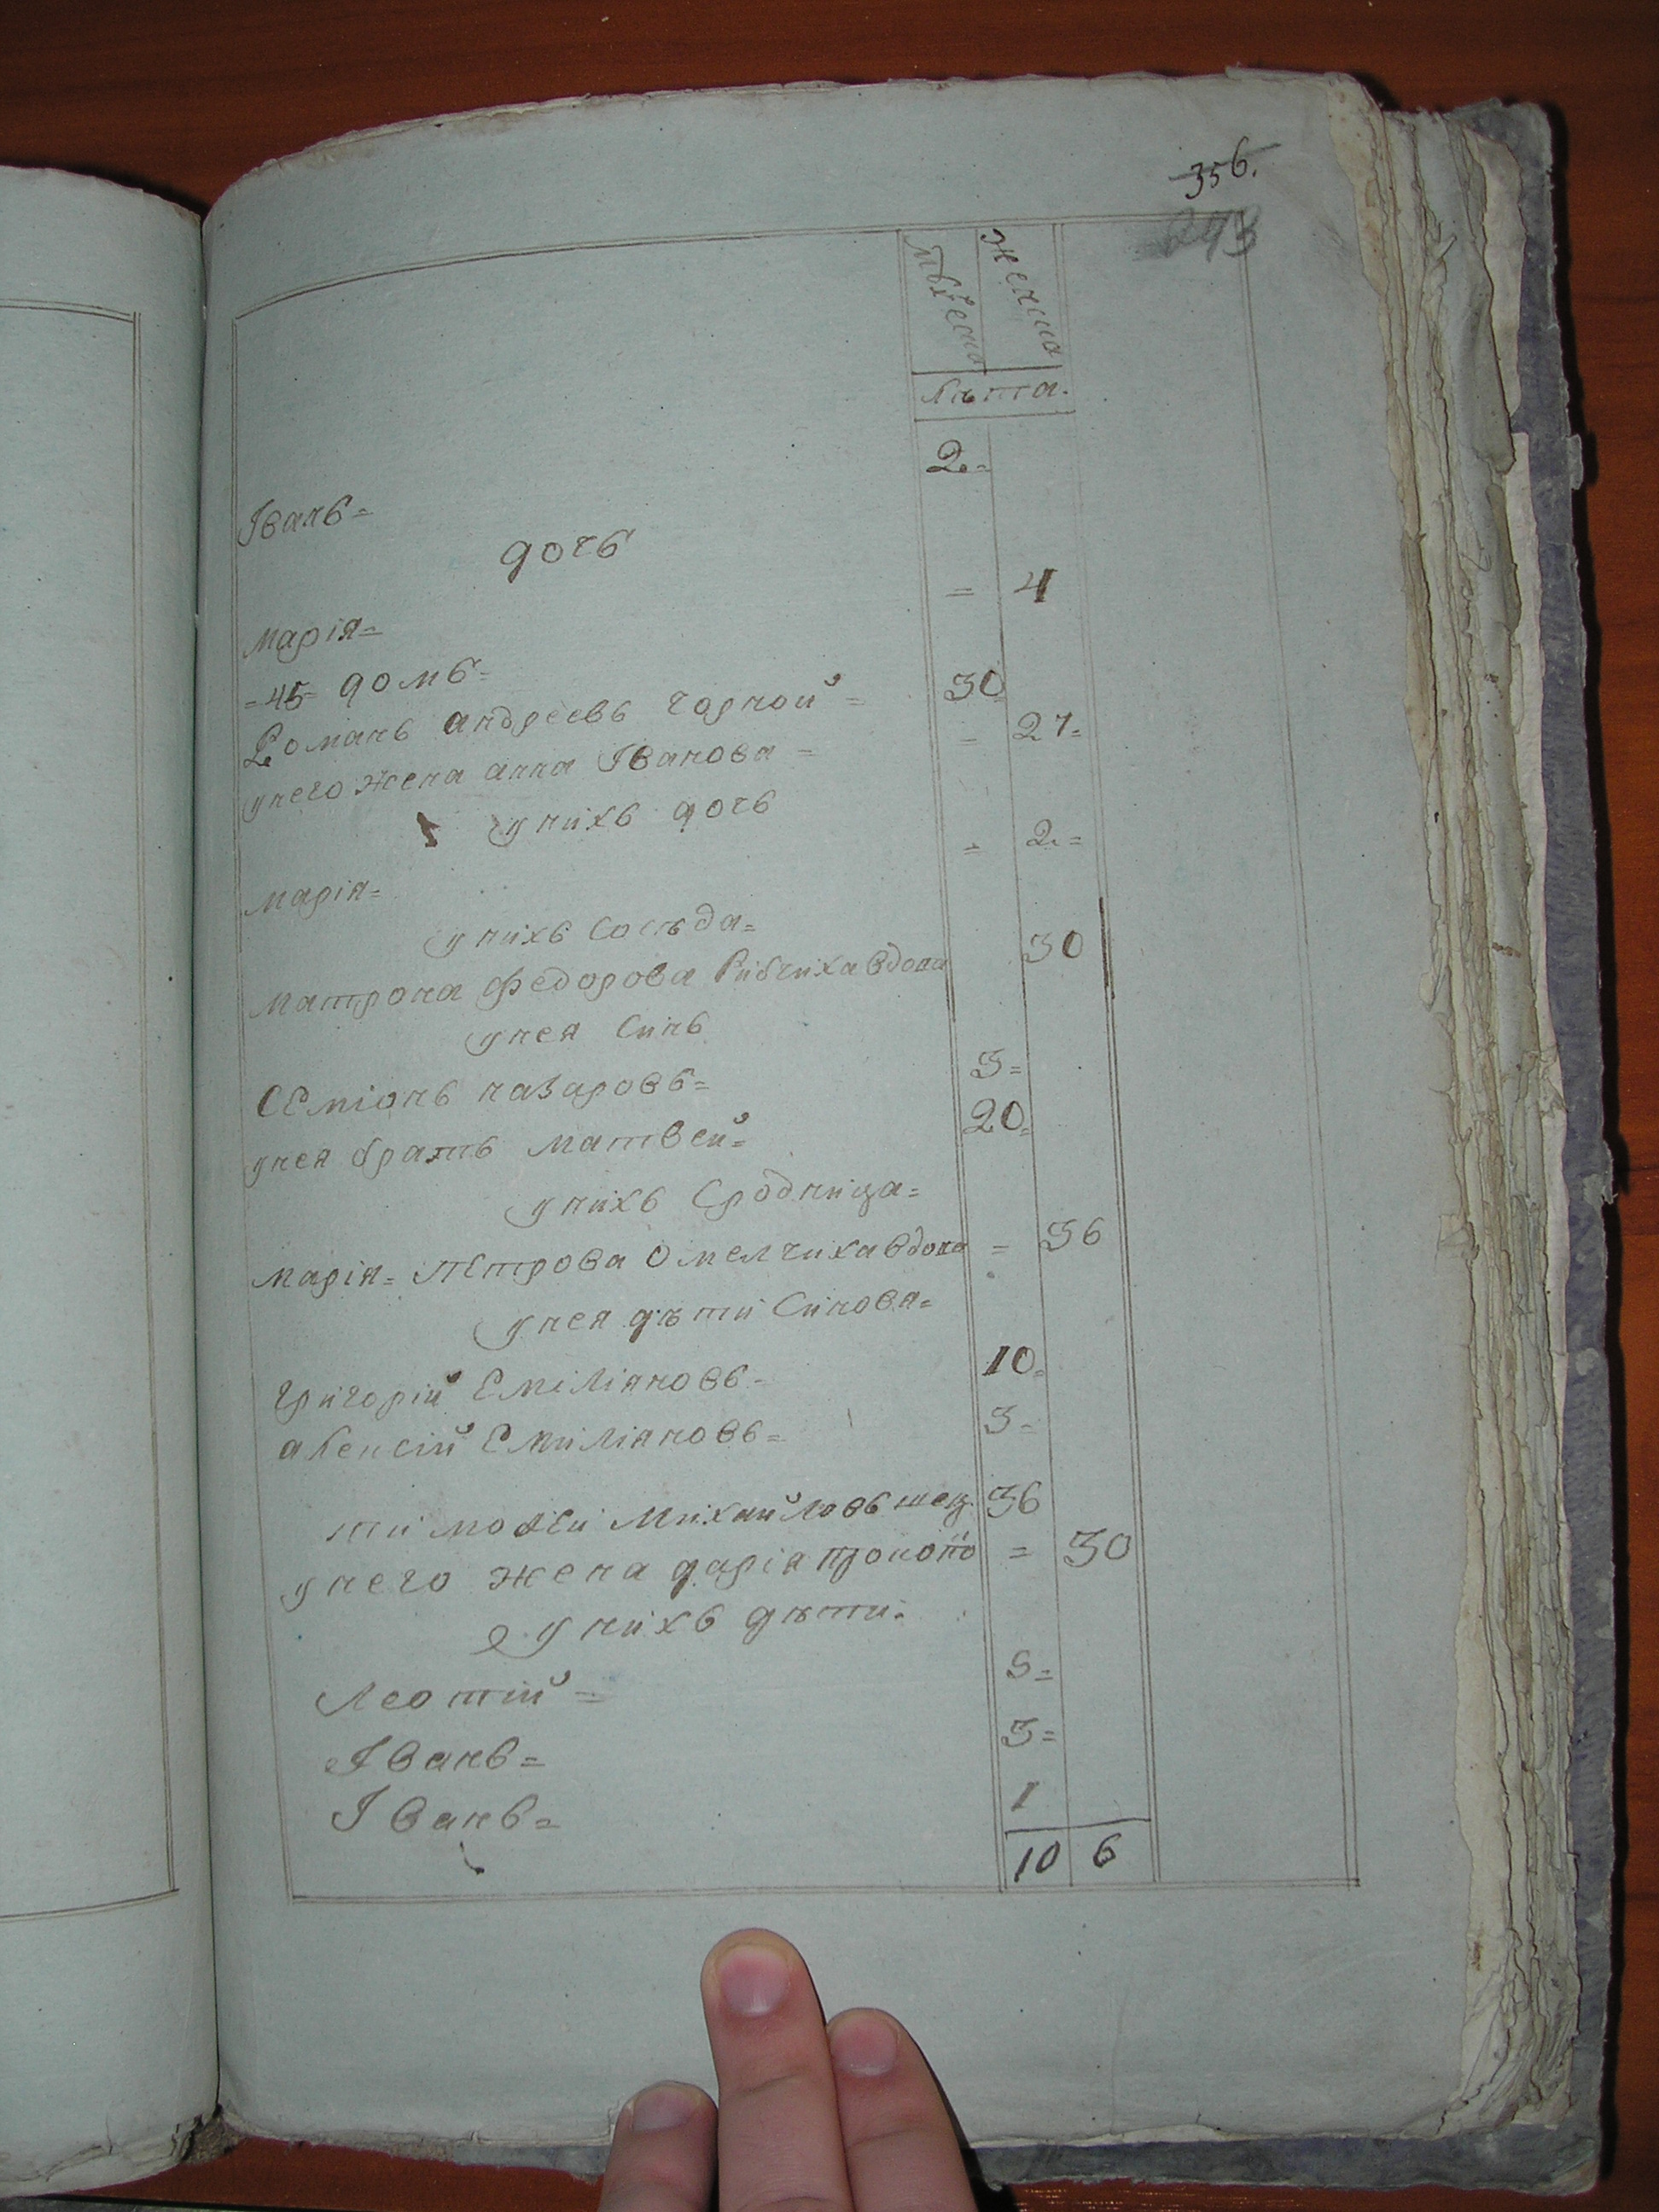 356.
293
мужеска
женска
лѣта.
Іванъ= 2.=
дочь
марія= = 4
=45= домъ=
Романъ андреевъ чорной = 30=
унего жена анна Іванова = = 27=
унихъ дочь
марія= = 2.=
унихъ Сосѣда=
матрона федорова Рибчиха вдова 30
унея Синъ
СЕміонъ назаровъ= 3=
унея братъ матвей= 20=
унихъ Сродница=
марія= пЕтрова Омелчиха вдова = 36
унея дѣти Синовя=
григорій Еміліановъ= 10=
алексій Емиліановъ= 3=
тимофей Михайловъ 36
унего жена дарія прокопо = 30
унихъ дѣти.
Леотій= 5=
Іванъ= 3=
Іванъ= 1
10 6